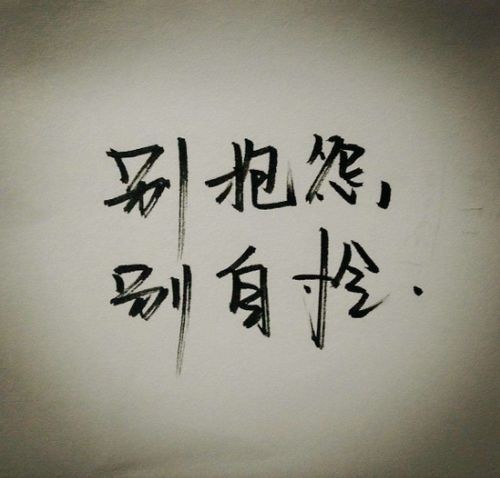 别抱怨，
别自怜.